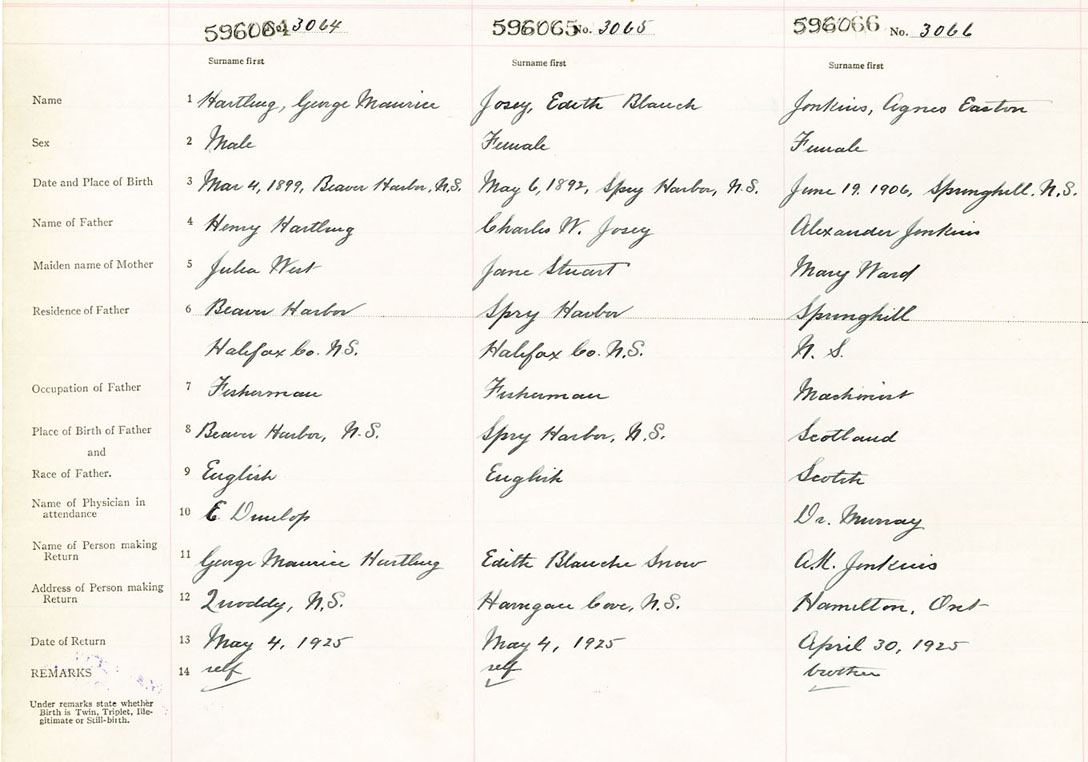 596064 No. 3064 596065 No. 3065 596066 No. 3066
Surname first Surname first Surname first
Name 1 Hartling, George Maurice Josey, Edith Blanch Jenkins, Agnes Easton
Sex 2 Male Female Female
Date and Place of Birth 3 Mar 4, 1899, Beaver Harbor, N.S. May 6, 1892, Spry Harbor, N.S. June 19. 1906, Springhill. N.S.
Name of Father 4 Henry Hartling Charles W. Josey Alexander Jenkins
Maiden name of Mother 5 Julia West Jane Stuart Mary Ward
Residence of Father 6 Beaver Harbor Spry Harbor Springhill
Halifax Co. N.S. Halifax Co. N.S. N. S.
Occupation of Father 7 Fisherman Fisherman Machinist
Place of Birth of Father 8 Beaver Harbor, N.S. Spry Harbor, N.S. Scotland
and
Race of Father. 9 English English Scotch
Name of Physician in
attendance 10 E. Dunlop Dr. Murray
Name of Person making
Return 11 George Maurice Hartling Edith Blanche Snow A.M. Jenkins
Address of Person making
Return 12 Quoddy, N.S. Harrigan Cove, N.S. Hamilton, Ont
Date of Return 13 May 4, 1925 May 4, 1925 April 30, 1925
REMARKS 14 self self brother
Under remarks state whether
Birth is Twin, Triplet, Ille-
gitimate or Still-birth.